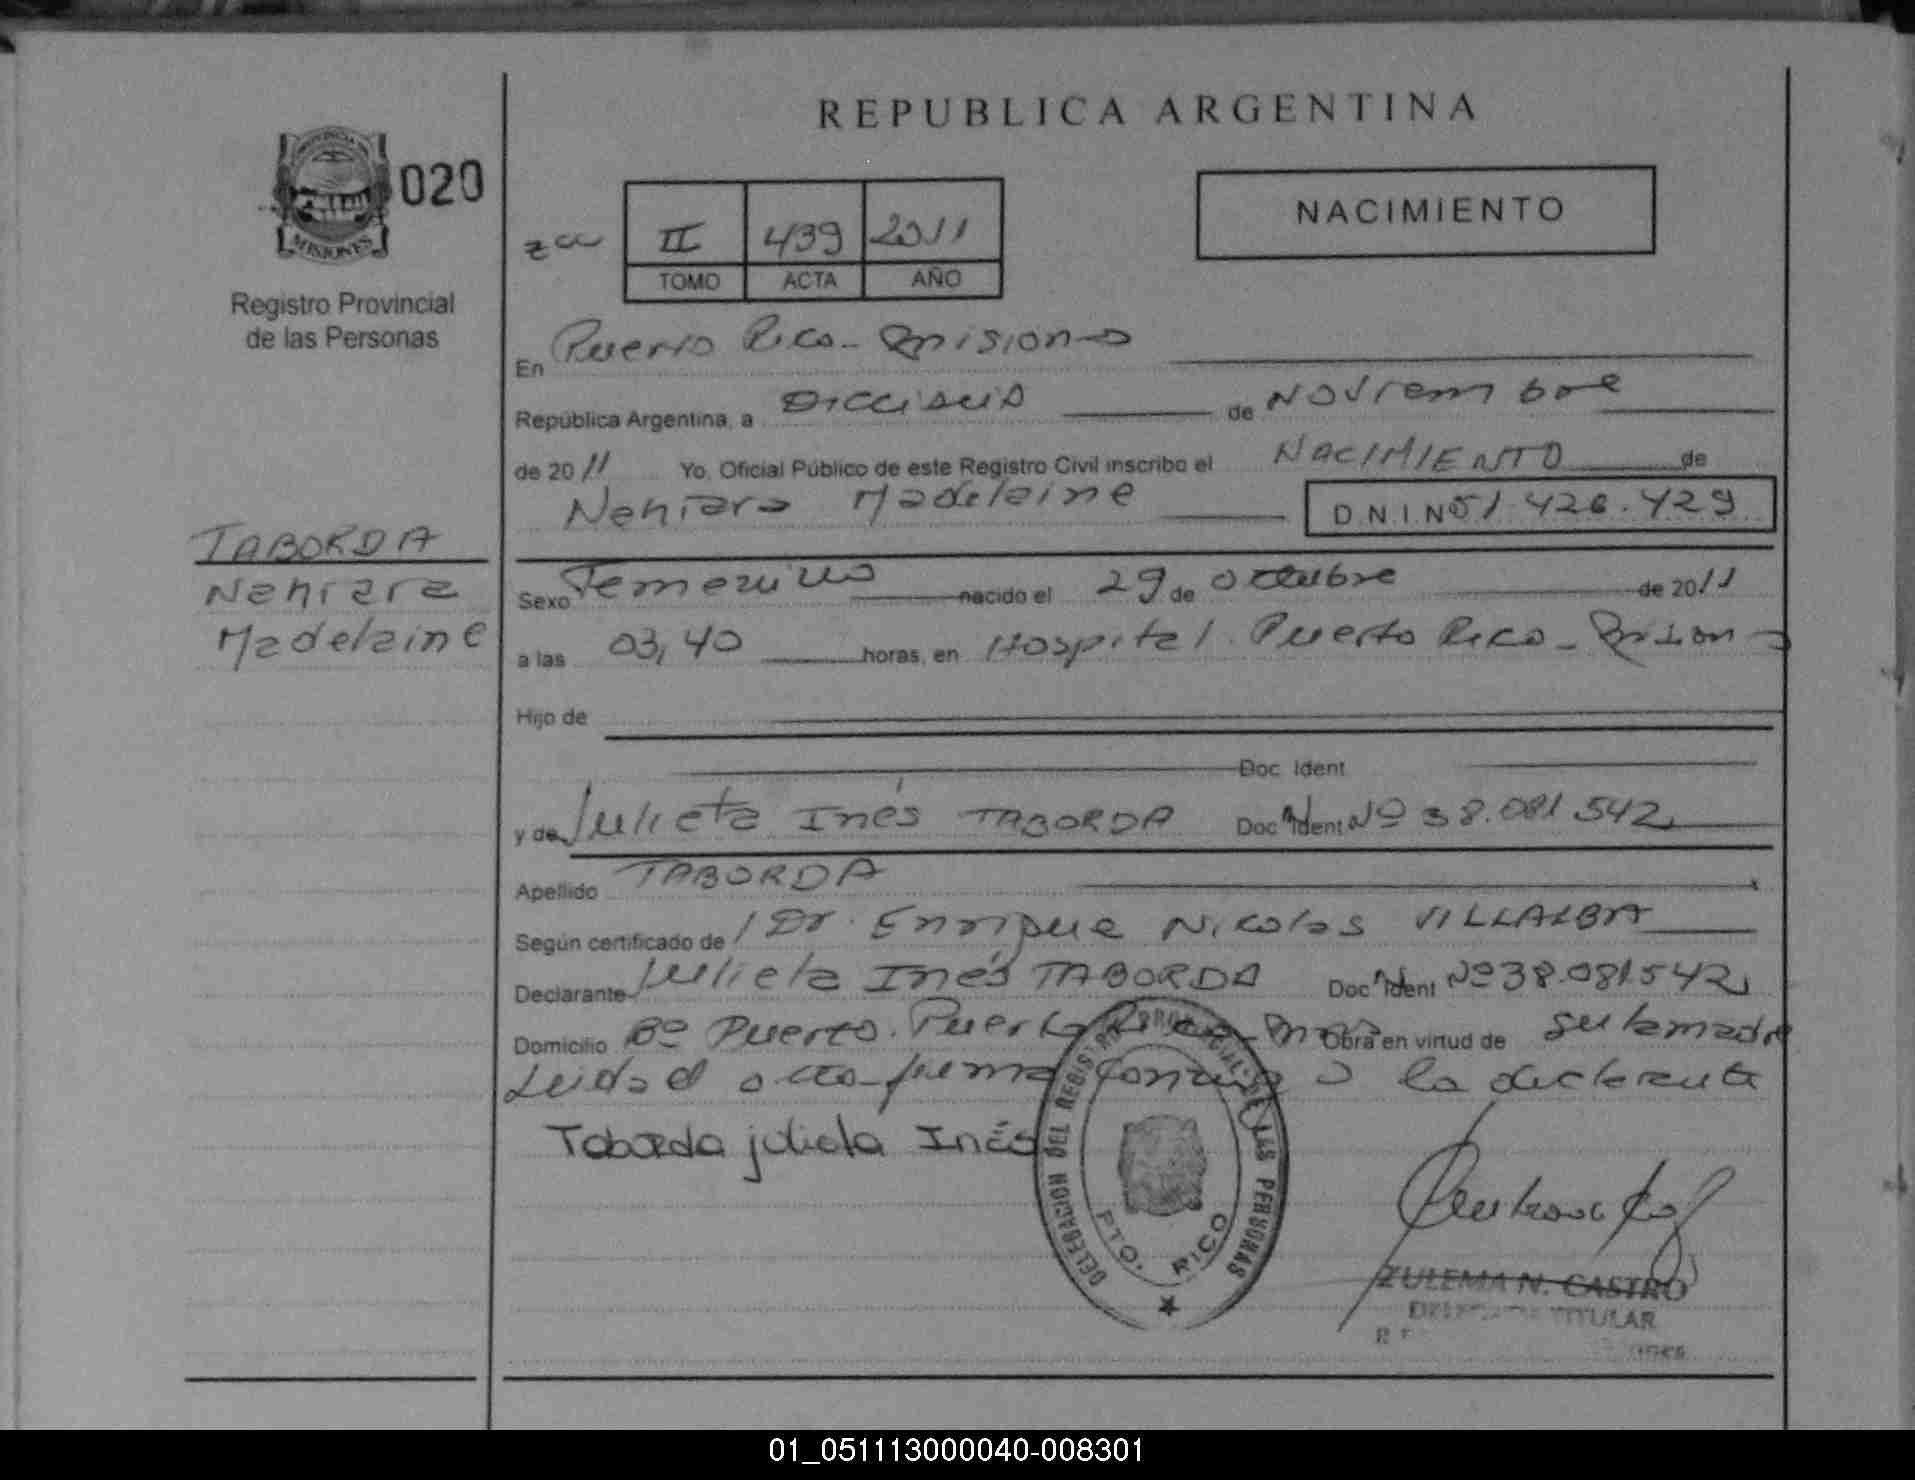 REPUBLICA ARGENTINA
PROVINCIA DE
MISIONES
020
Registro Provincial
de las Personas
II 439 2011
TOMO ACTA AÑO
NACIMIENTO
En Puerto Rico - Misiones
República Argentina, a Dieciseis de Noviembre
de 2011 Yo, Oficial Público de este Registro Civil inscribo el NACIMIENTO de
Nahiara Madelaine D.N.I.Nº 51.426.429
TABORDA
Nahiara
Madelaine
Sexo Femenino nacido el 29 de octubre de 2011
a las 03,40 horas, en Hospital. Puerto Rico - Misiones
Hijo de
Doc. Ident
y de Julieta Inés TABORDA Doc. Ident Nº 38.081.542
Apellido TABORDA
Según certificado de Dr. Enrique Nicolas VILLALBA
Declarante Julieta Inés TABORDA Doc. Ident Nº 38.081.542
Domicilio Bº Puerto. Puerto Rico - Mnes Obra en virtud de ser la madre
Leida el acta firma conmigo la declarante
Taborda julieta Inés
DELEGACION DEL REGISTRO PROVINCIAL DE LAS PERSONAS
PTO. RICO
ZULEMA N. CASTRO
TITULAR
01_051113000040-008301